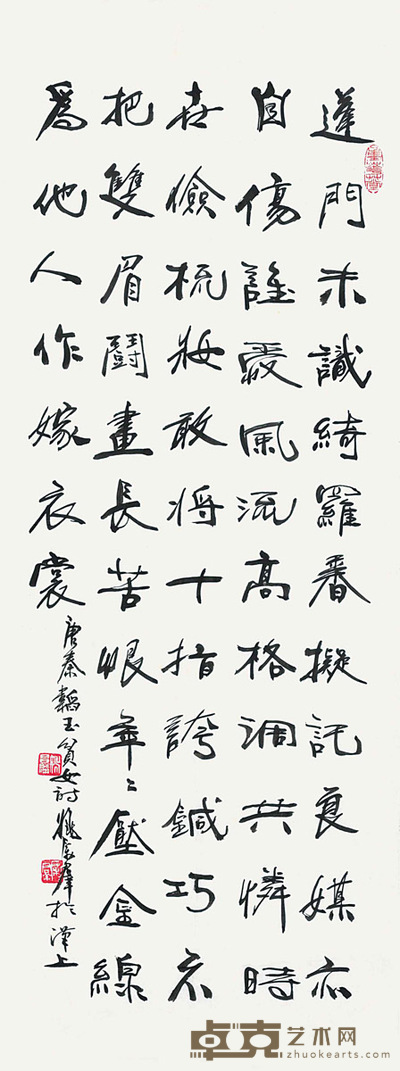 蓬門未識綺羅香擬託良媒亦
自傷誰愛風流高格調共憐時
世儉梳妝敢將十指誇鍼巧不
把雙眉鬪畫長苦恨年〻壓金線
爲他人作嫁衣裳
唐秦韜玉貧女詩姚於漢上
卓克艺术网
zhuokearts.com